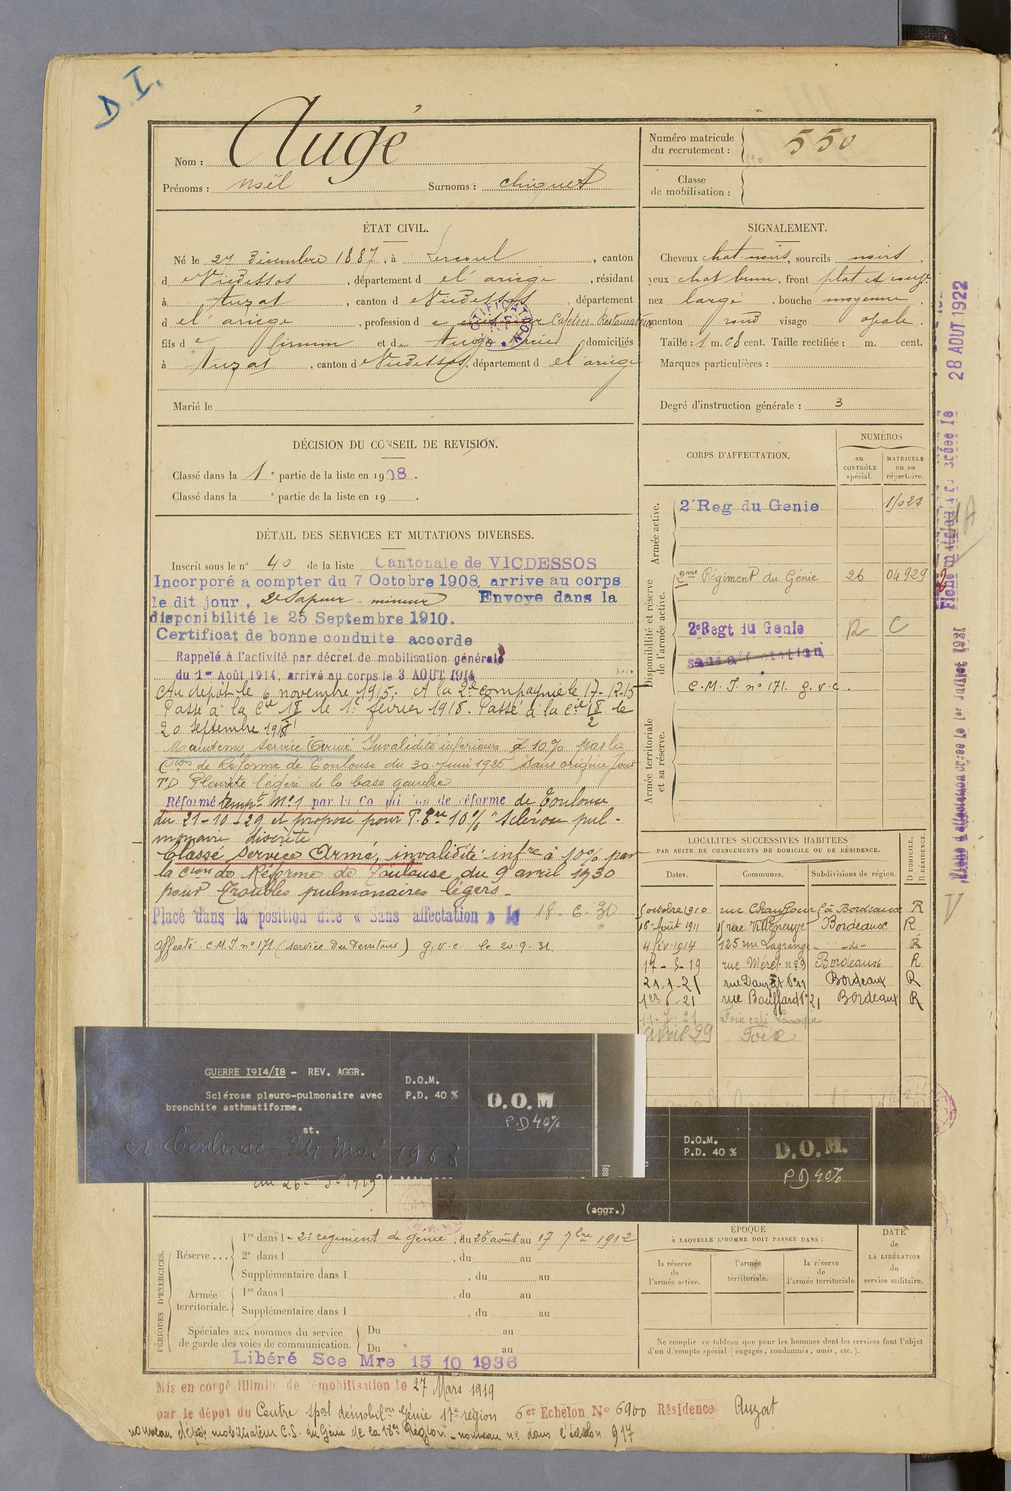 D I.
Nom : Augé
Prénoms : Noël Surnoms : chiquet
Numéro matricule
du recrutement : 550
Classe
de mobilisation :
ÉTAT CIVIL.
Né le 27 Décembre 1887, à Lercoul, canton
d Vicdessos, département d el'ariège, résidant
à Auzat, canton d Vicdessos, département
d el'ariège, profession d Cafetier Restaurateur
fils d e Firmin et de Augé domiciliés
à Auzat, canton d Vicdessos, département d el'ariège
Marié le
SIGNALEMENT.
Cheveux chat noirs, sourcils noirs,
yeux chat brun, front plat et
nez large, bouche moyenne,
menton rond visage opale.
Taille : 1 m. 68 cent. Taille rectifiée : m. cent.
Marques particulières :
Degré d'instruction générale : 3
DÉCISION DU CONSEIL DE REVISION.
Classé dans la 1e partie de la liste en 1908.
Classé dans la e partie de la liste en 19 .
DÉTAIL DES SERVICES ET MUTATIONS DIVERSES.
Inscrit sous le n° 40 de la liste Cantonale de VICDESSOS
Incorporé a compter du 7 Octobre 1908, arrive au corps
le dit jour, 2e Sapeur-mineur Envoye dans la
disponibilité le 25 Septembre 1910.
Certificat de bonne conduite accorde
Rappelé à l'activité par décret de mobilisation générale
du 1er Août 1914, arrivé au corps le 3 AOUT 1914
Au dépôt le 6 novembre 1915. A la 2e compagnie le 17-12-15
Passé à la Cie 18 le 1er février 1918. Passé à la Cie 18/2 le
20 septembre 1918
Maintenu Service Armé Invalidité inférieure à 10% par la
Cion de Réforme de Toulouse du 30 juin 1925 sans origine pour
P.D Pleurite légère de la base gauche
Réformé tempre N°1 par la Commission de réforme de Toulouse
du 21-10-29 et proposé pour P. Tre 10% "sclérose pul-
monaire discrète
Classé Service Armé, invalidité infre à 10% par
la Cion de Réforme de Toulouse du 9 avril 1930
pour Troubles pulmonaires légers.
Placé dans la position dite « Sans affectation » le 18-6-30
Affecté C.M.I n° 171 (service du Territoire) g.v.c. le 20-9-31
CORPS D'AFFECTATION.
NUMÉROS
au
CONTRÔLE
spécial.
MATRICULE
ou au
répertoire.
Armée active.
2e Reg du Genie
Disponibilité et réserve
de l'armée active.
2me Régiment du Génie 26 04929
2e Regt du Genie R C
sans affectation
C.M.I n° 171. g.v.c.
Armée territoriale
et sa réserve.
LOCALITÉS SUCCESSIVES HABITÉES
PAR SUITE DE CHANGEMENTS DE DOMICILE OU DE RÉSIDENCE.
Dates. Communes. Subdivisions de région. D DOMICILE. R RÉSIDENCE.
5 octobre 1910 rue à Bordeaux R
16 Août 1911 rue Villeneuve Bordeaux R
4 fév. 1914 125 rue Lagrange -de- R
17-5-19 rue Méret n° 9 Bordeaux R
21.1.21 rue Bordeaux R
1er 6-21 rue Bouffard n° 21 Bordeaux R
11-7-21 Foix
avril 29 Foix
28 AOUT 1922
GUERRE 1914/18 - REV. AGGR.
Sclérose pleuro-pulmonaire avec
bronchite asthmatiforme.
st.
D.O.M.
P.D. 40 %
D.O.M
P.D 40%
Toulouse 24 mai 1963
D.O.M.
P.D. 40 %
D.O.M.
P.D 40%
(aggr.)
PÉRIODES D'EXERCICES.
Réserve ...
1re dans l 2e régiment de génie, du 26 août au 17 7bre 1912
2e dans l , du au
Supplémentaire dans l , du au
Armée
territoriale.
1re dans l , du au
Supplémentaire dans l , du au
Spéciales aux hommes du service
de garde des voies de communication.
Du au
Du au
Libéré Sce Mre 15 10 1936
ÉPOQUE
À LAQUELLE L'HOMME DOIT PASSER DANS :
la réserve
de
l'armée active.
l'armée
territoriale.
la réserve
de
l'armée territoriale
DATE
de
LA LIBÉRATION
du
service militaire.
Ne remplir ce tableau que pour les hommes dont les services font l'objet
d'un décompte spécial (engagés, condamnés, omis, etc.).
Mis en congé illimité de démobilisation le 27 Mars 1919
par le dépôt du Centre spal démobilon Génie 17e région 6er Echelon N° 6900 Résidence Auzat
nouveau dépôt mobilisateur C.S. du Génie de la 18e Région - nouveau n° dans l'échelon 917